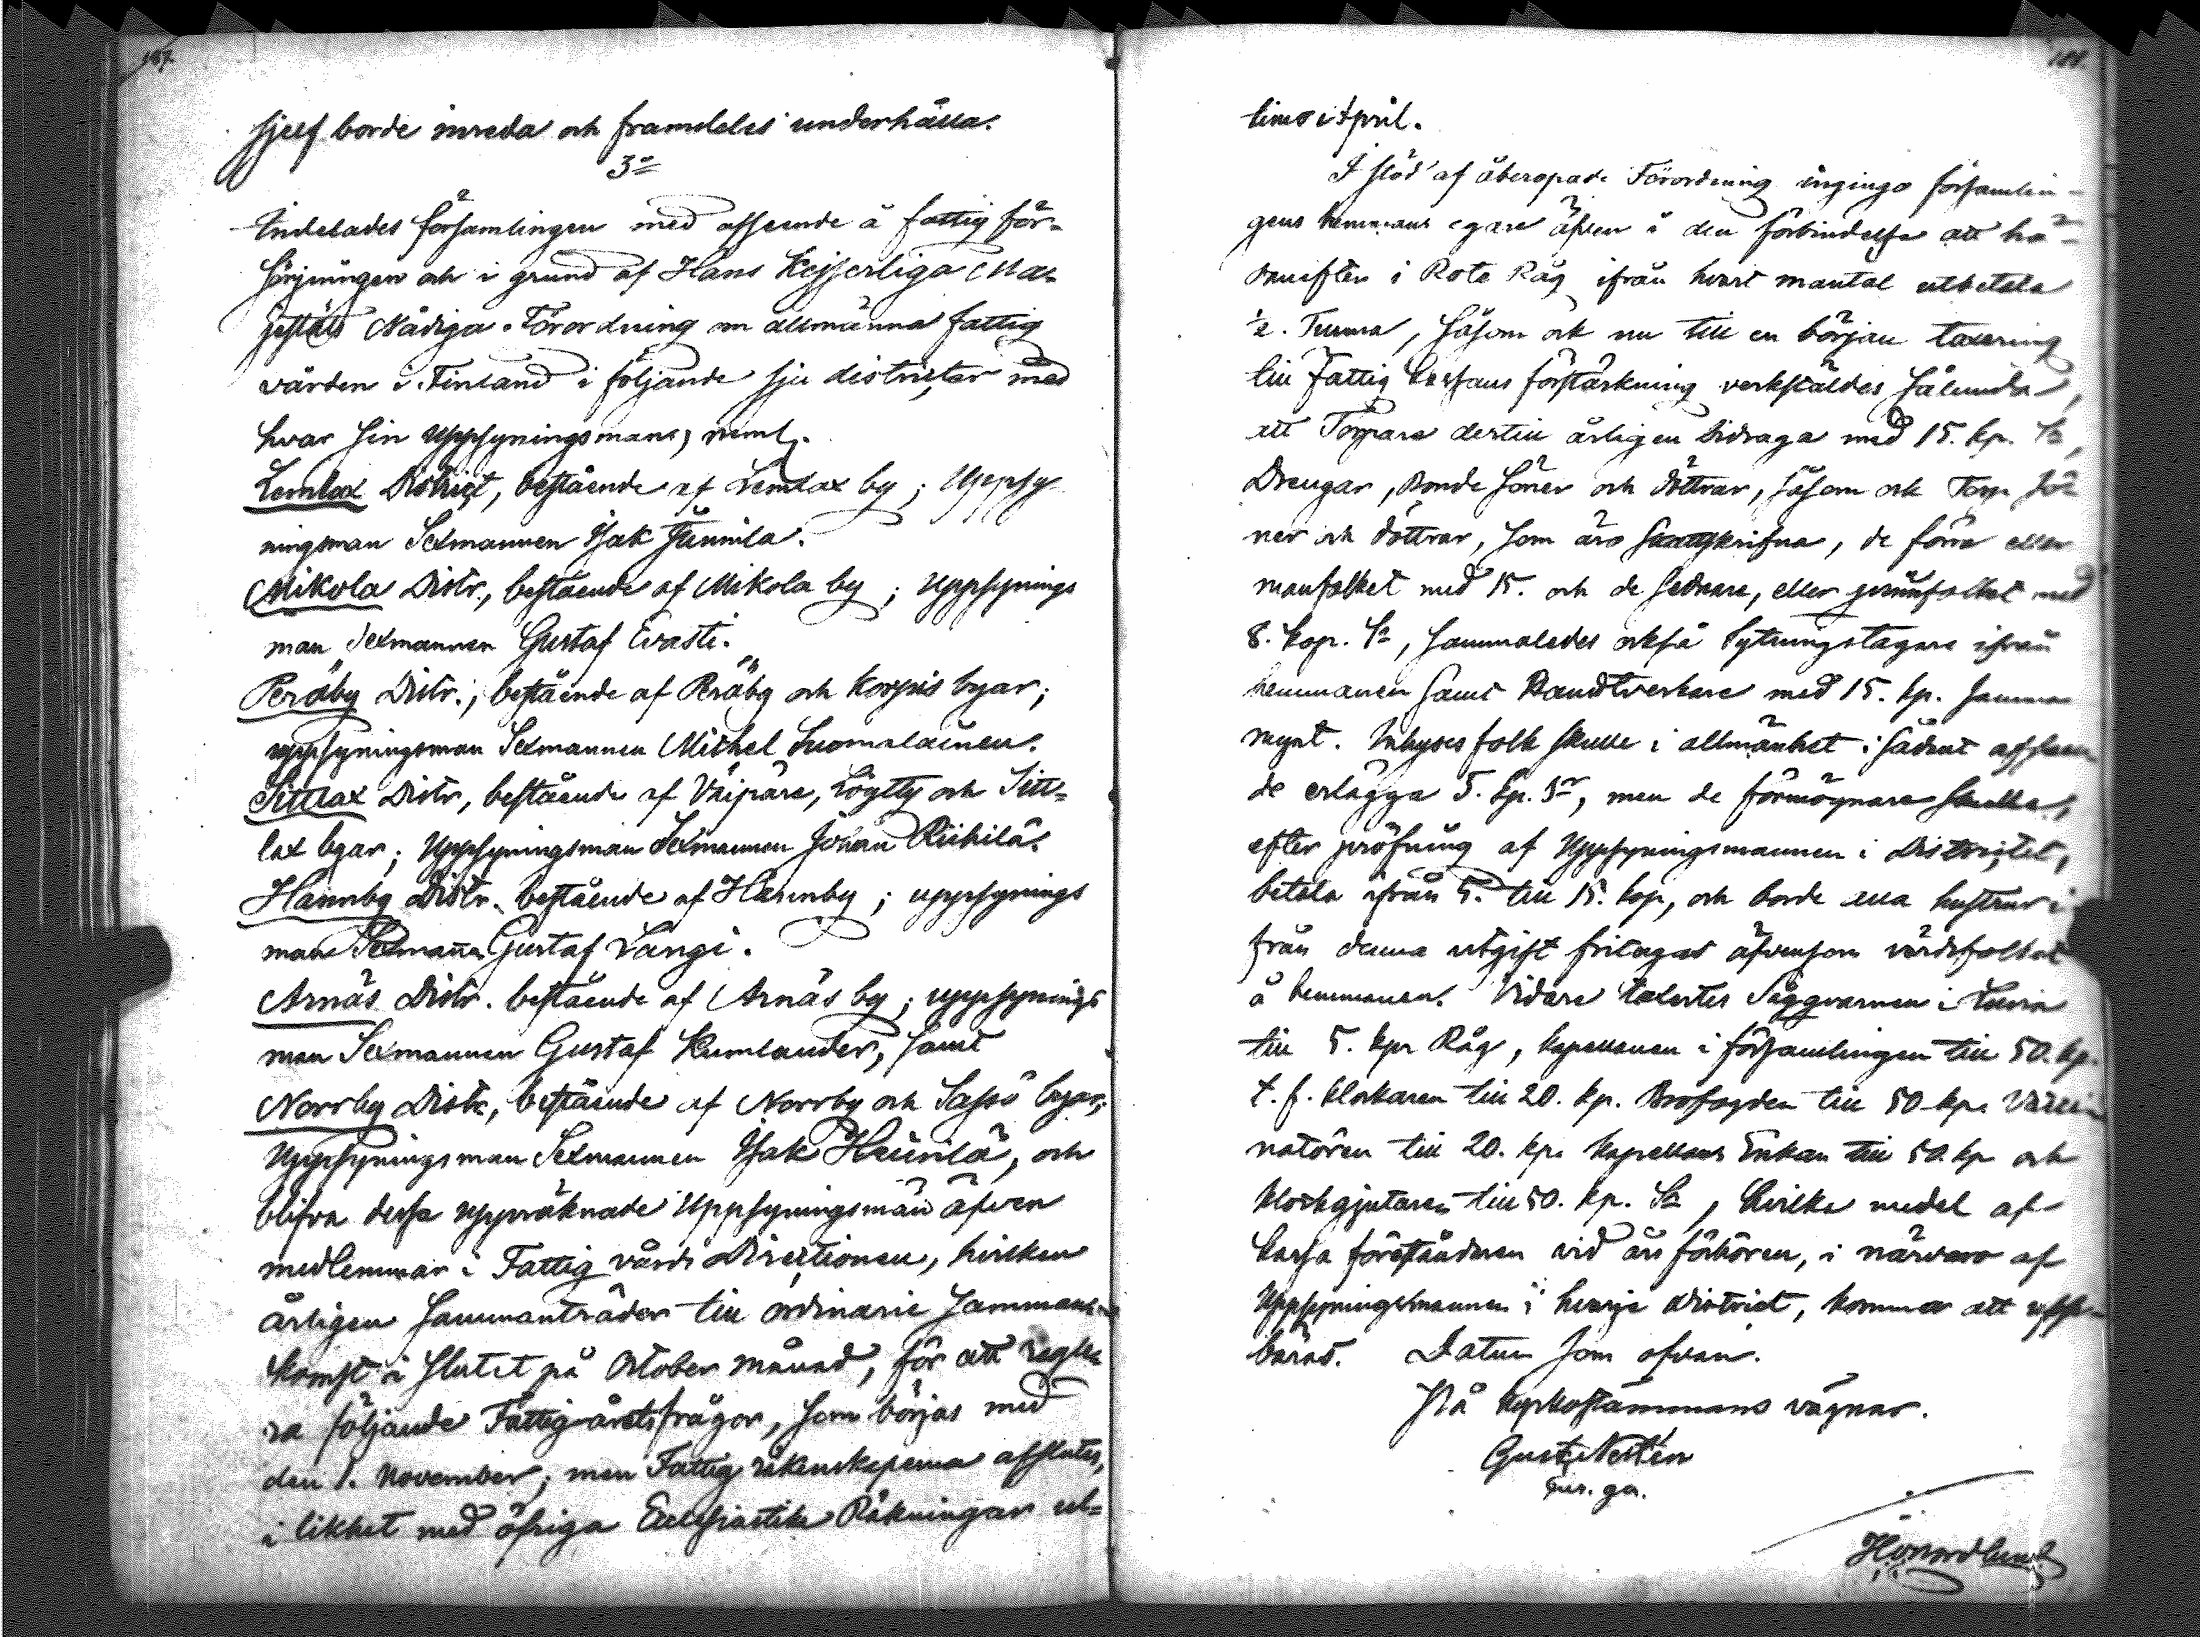 187.
sjelf borde inreda och framdeles underhålla.
3o
Indelades församlingen med afseende å fattig för-
sörjningen och i grund af Hans Kejserliga Ma-
jestäts Nådiga Förordning om allmänna fattig
vården i Finland i följande sju districter med
hvar sin Uppsyningsman, neml.
Lemlax District, bestående af Lemlax by; Uppsy
ningsman Sexmannen Isak Junnila.
Mikola Distr., bestående af Mikola by; Uppsynings
man Sexmannen Gustaf Evasti.
Peräby Distr.; bestående af Peräby och Korpis byar;
uppsyningsman Sexmannen Michel Suomalainen.
Sittlax Distr, bestående af Väipäre, Löytty och Sitt-
lax byar; Uppsyningsman Sexmannen Johan Riihilä.
Hannby Distr. bestående af Hannby; uppsynings
man Sexmann Gustaf Langi.
Arnäs Distr. bestående af Arnäs by; uppsynings
man Sexmannen Gustaf Kumlander, samt
Norrby Distr, bestående af Norrby och Safsö byar;
Uppsyningsman Sexmannen Isak Heinilä, och
blifva dessa uppräknade Uppsyningsmän äfven
medlemmar i Fattig vårds Directionen, hvilken
årligen sammanträder till ordinarie samman-
komst i slutet på October månad, för att regle
ra följande Fattig-årets frågor, som börjas med
den 1. November; men Fattig räkenskaperna afslutes,
i likhet med öfriga Ecclesiastike Räkningar ul-
188
timo i April.
I stöd af åberopade Förordning ingingo församlin-
gens hemmans egare äfven i den förbindelse att hä-
danefter i Rote Råg ifrån hvart mantal utbetala
1/2. Tunna, såsom ock nu till en början taxering
till Fattig Cassans förstärkning verkstäldes sålunda,
att Torpare dertill årligen bidraga med 15. kp. Sr,
Drengar, Bonde söner och döttrar, såsom ock Torp sö
ner och döttrar, som äro skattskrifna, de förra eller
manfolket med 15. och de sednare, eller qvinnfolket med
8. kop. Sr, sammaledes också Sytningstagare ifrån
hemmanen samt Handtverkare med 15. kp. samma
mynt. Inhyses folk skulle i allmänhet i sådant afseen
de erlägga 5. kp. Sr, men de förmögnare skulle,
efter pröfning af Uppsyningsmannen i Districtet,
betala ifrån 5. till 15. kop, och borde alla hustrur i
från denna utgift fritagas äfvensom värdsfolket
å hemmanen. Vidare taxertes Såggvarnen i
till 5. kpr Råg, kapellanen i församlingen till 50. kp.
t. f. klockaren till 20. kp. Brofogden till 50 kp. Vaccin
natören till 20. kp. kapellans Enkan till 50. kp och
klockgjutaren till 50. kp. Sr, hvilka medel af
Cassa föreståndaren vid års förhören, i närvaro af
Uppsyningsmannen i hvarje District, komma att upp
bäras. Datum som ofvan.
På kyrkostämmans vägnar.
Gust. Nestén